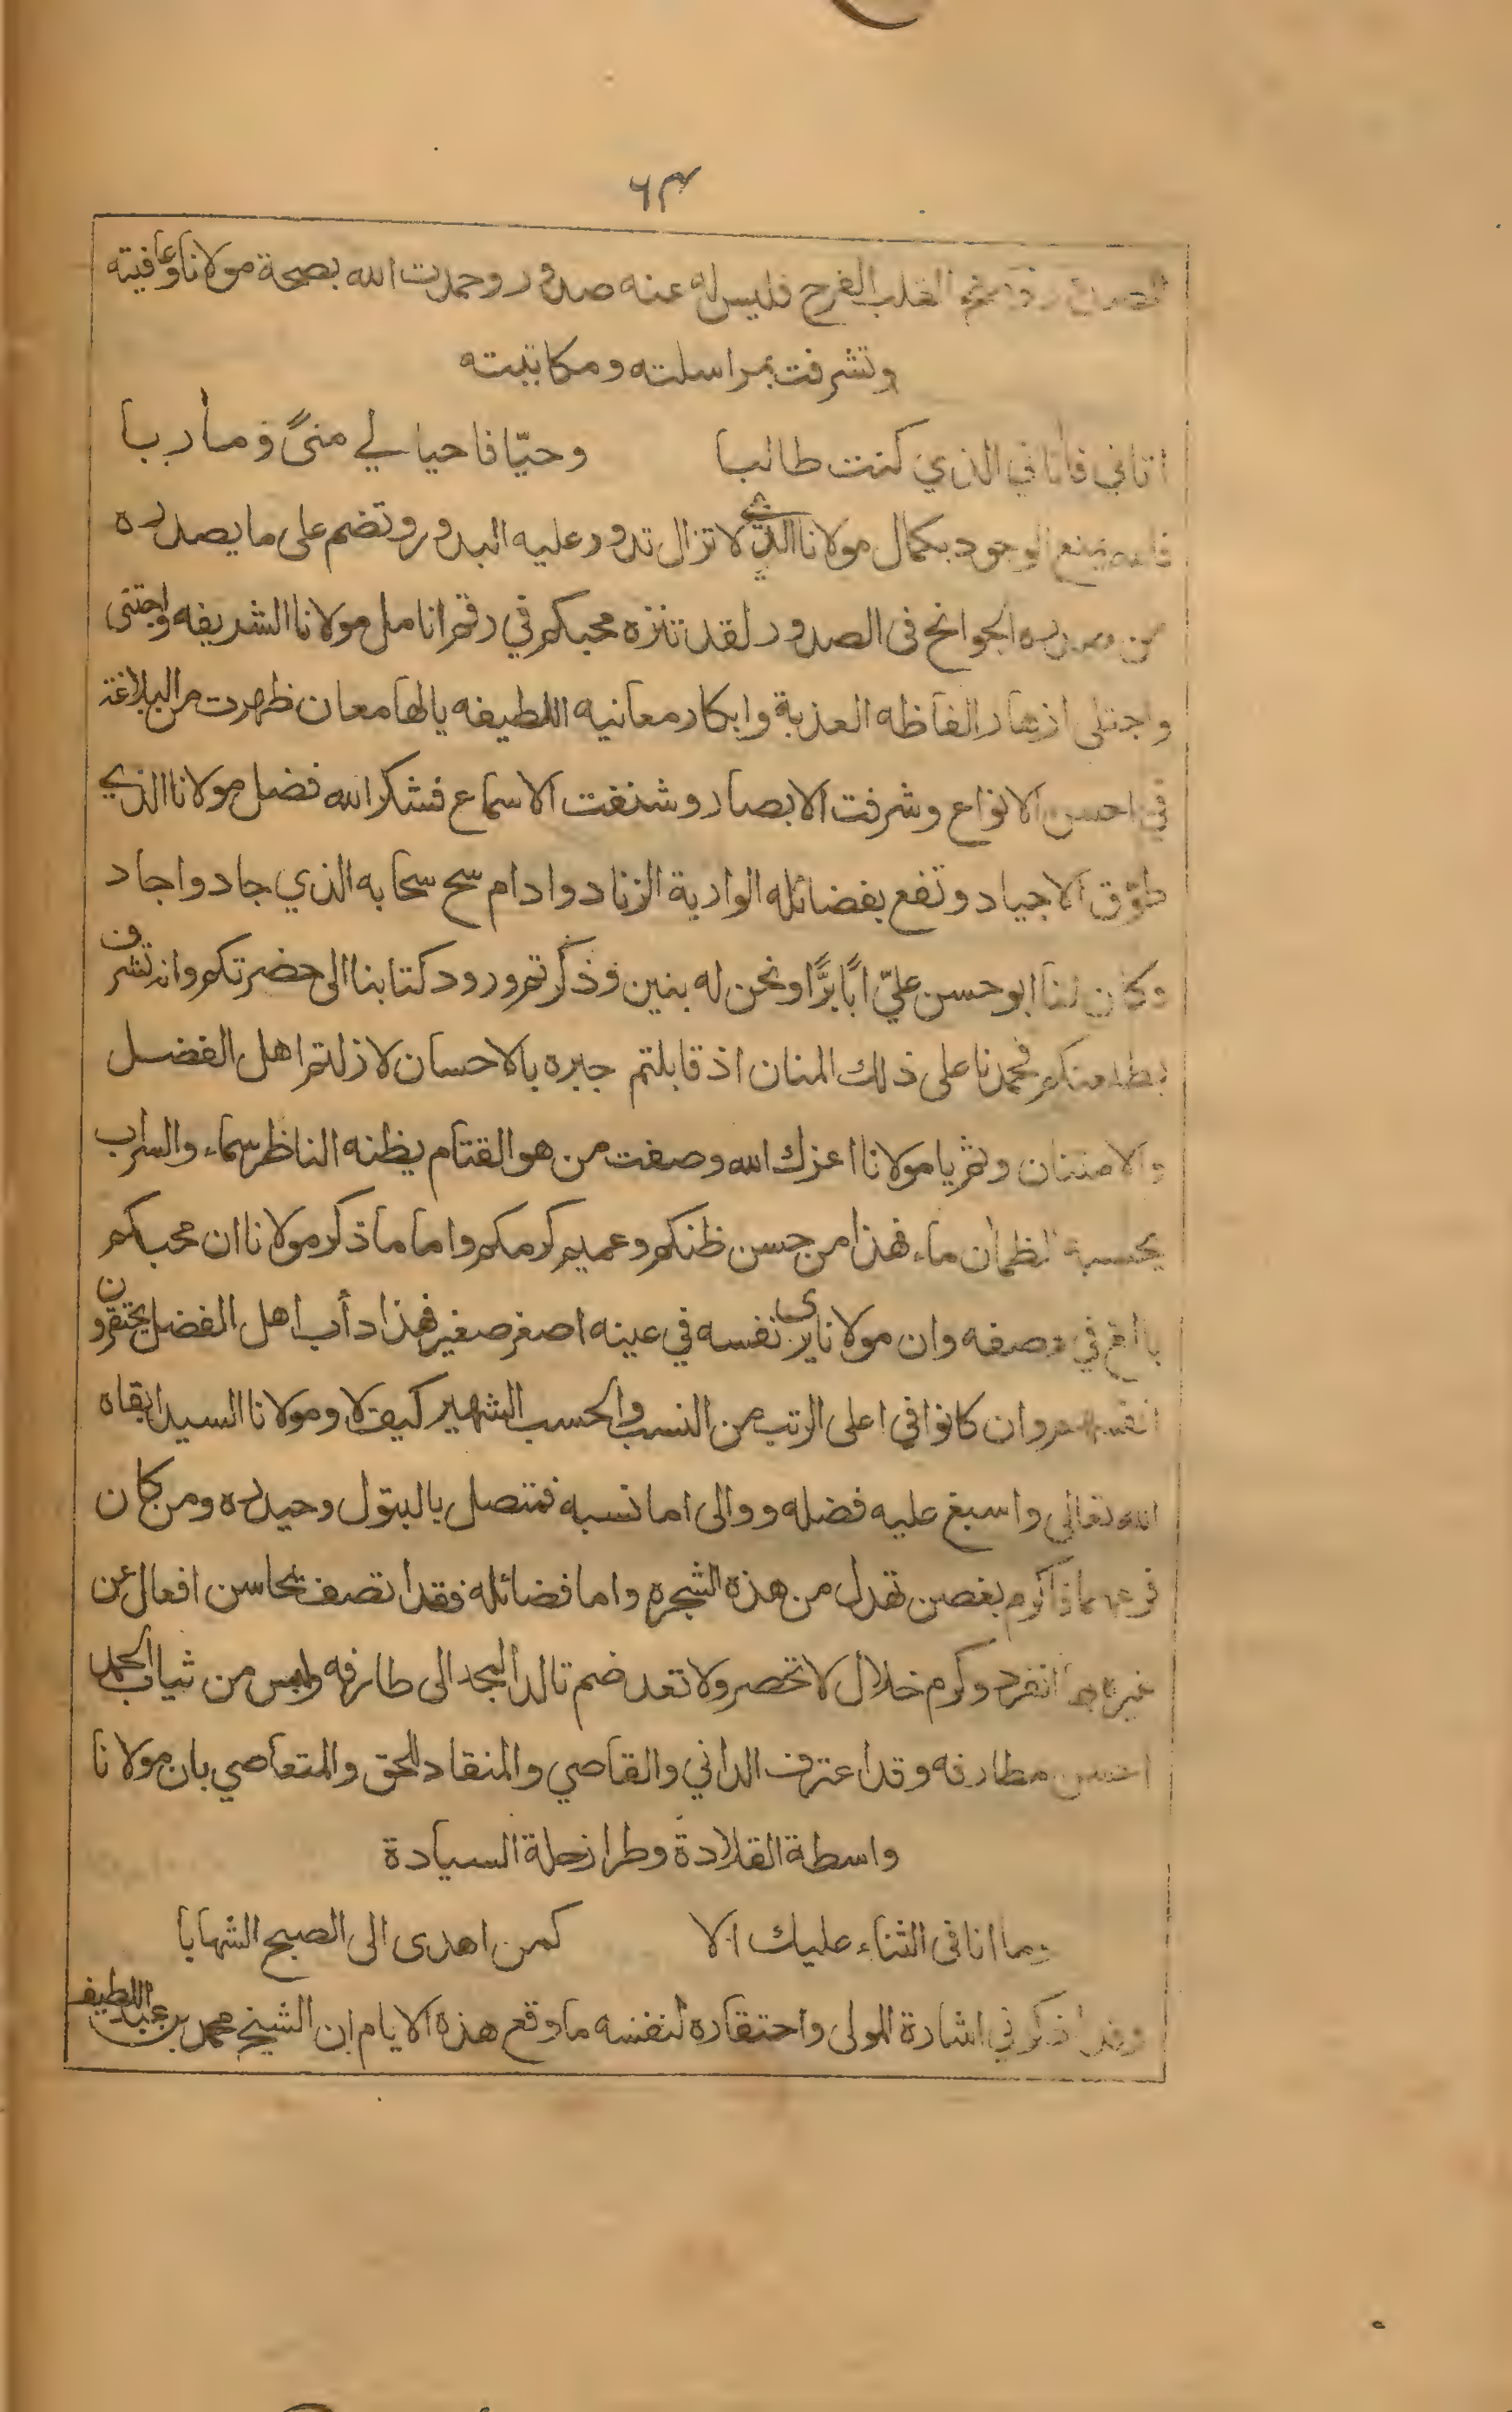 ٦٣
القلب الفرح فليس له عنه صدور وحمدت الله بصحة مولانا وعافيته
وتشرفت بمراسلته ومكاتبته
اتاني فاتاني الذي كنت طالبا وحيّا فاحيا لي منىً ومأربا
الوجود بكمال مولانا الذي لا تزال تدور عليه البدور وتضم على ما يصدره
من الجوانح فى الصدور لقد تنزه محبكم في رقم انامل مولانا الشريفه واجتنى
واجتلى ازهار الفاظه العذبة وابكار معانيه اللطيفه يالها معان ظهرت من البلاغة
في احسن الانواع وشرفت الابصار وشنفت الاسماع فشكر الله فضل مولانا الذي
طوّق الاجياد ونفع بفضائله الوارية الزناد وادام سح سحابه الذي جاد واجاد
وكان لنا ابو حسن عليّ ابًا برًّا ونحن له بنين وذكرتم ورود كتابنا الى حضرتكم وانه تشرف
فحمدنا على ذلك المنان اذ قابلتم جبره بالاحسان لازلتم اهل الفضل
والامتنان ونثر يا مولانا اعزك الله وصفت من هو القتام يظنه الناظر سماء والسراب
يحسبه الظمأن ماء فهذا من حسن ظنكم وعميم كرمكم واما ما ذكر مولانا ان محبكم
بالغ في وصفه وان مولانا يرى نفسه في عينه اصغر صغير فهذا دأب اهل الفضل يحتقرون
انفسهم وان كانوا في اعلى الرتب من النسب والحسب الشهير كيف لا ومولانا السيد ابقاه
الله تعالى واسبغ عليه فضله ووالى اما نسبه فمتصل بالبتول وحيدره ومن كان
فرعهما فاكرم بغصن تهدل من هذه الشجره واما فضائله فقد اتصف بمحاسن افعال عن
غيره بها انفرد وكرم خلال لا تحصر ولا تعد ضم تالد المجد الى طارفه ولبس من ثياب الحمد
احسن مطارفه وقد اعترف الداني والقاصي والمنقاد للحق والمتعاصي بان مولانا
واسطة القلادة وطراز حلة السيادة
وما انا فى الثناء عليك الا كمن اهدى الى الصبح الشهابا
وقد اذكرني اشارة المولى واحتقاره لنفسه ما وقع هذه الايام ان الشيخ محمد بن عبد اللطيف